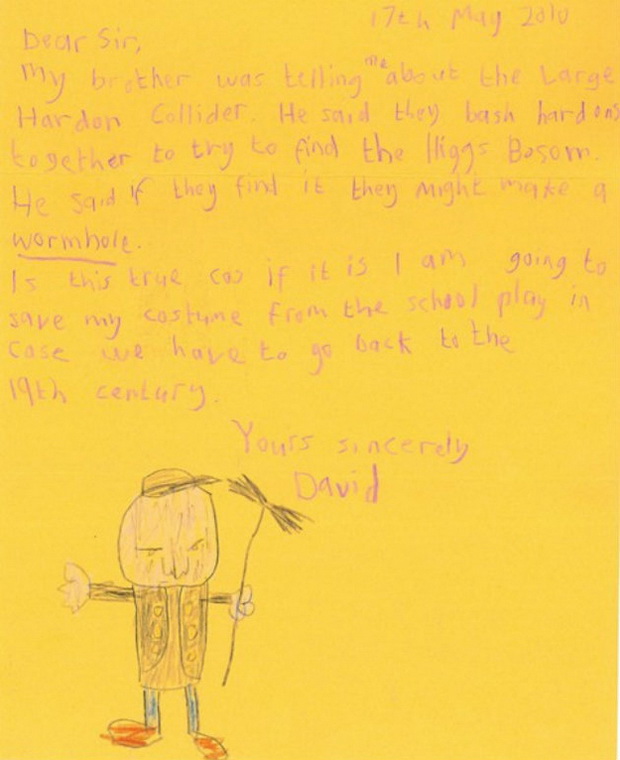 17th May 2010
Dear Sir,
My brother was telling me about the Large
Hardon Collider. He said they bash hardons
together to try to find the Higgs Bosom.
He said if they find it they might make a
wormhole.
Is this true cos if it is I am going to
save my costume from the school play in
case we have to go back to the
19th century.
Yours sincerely
David